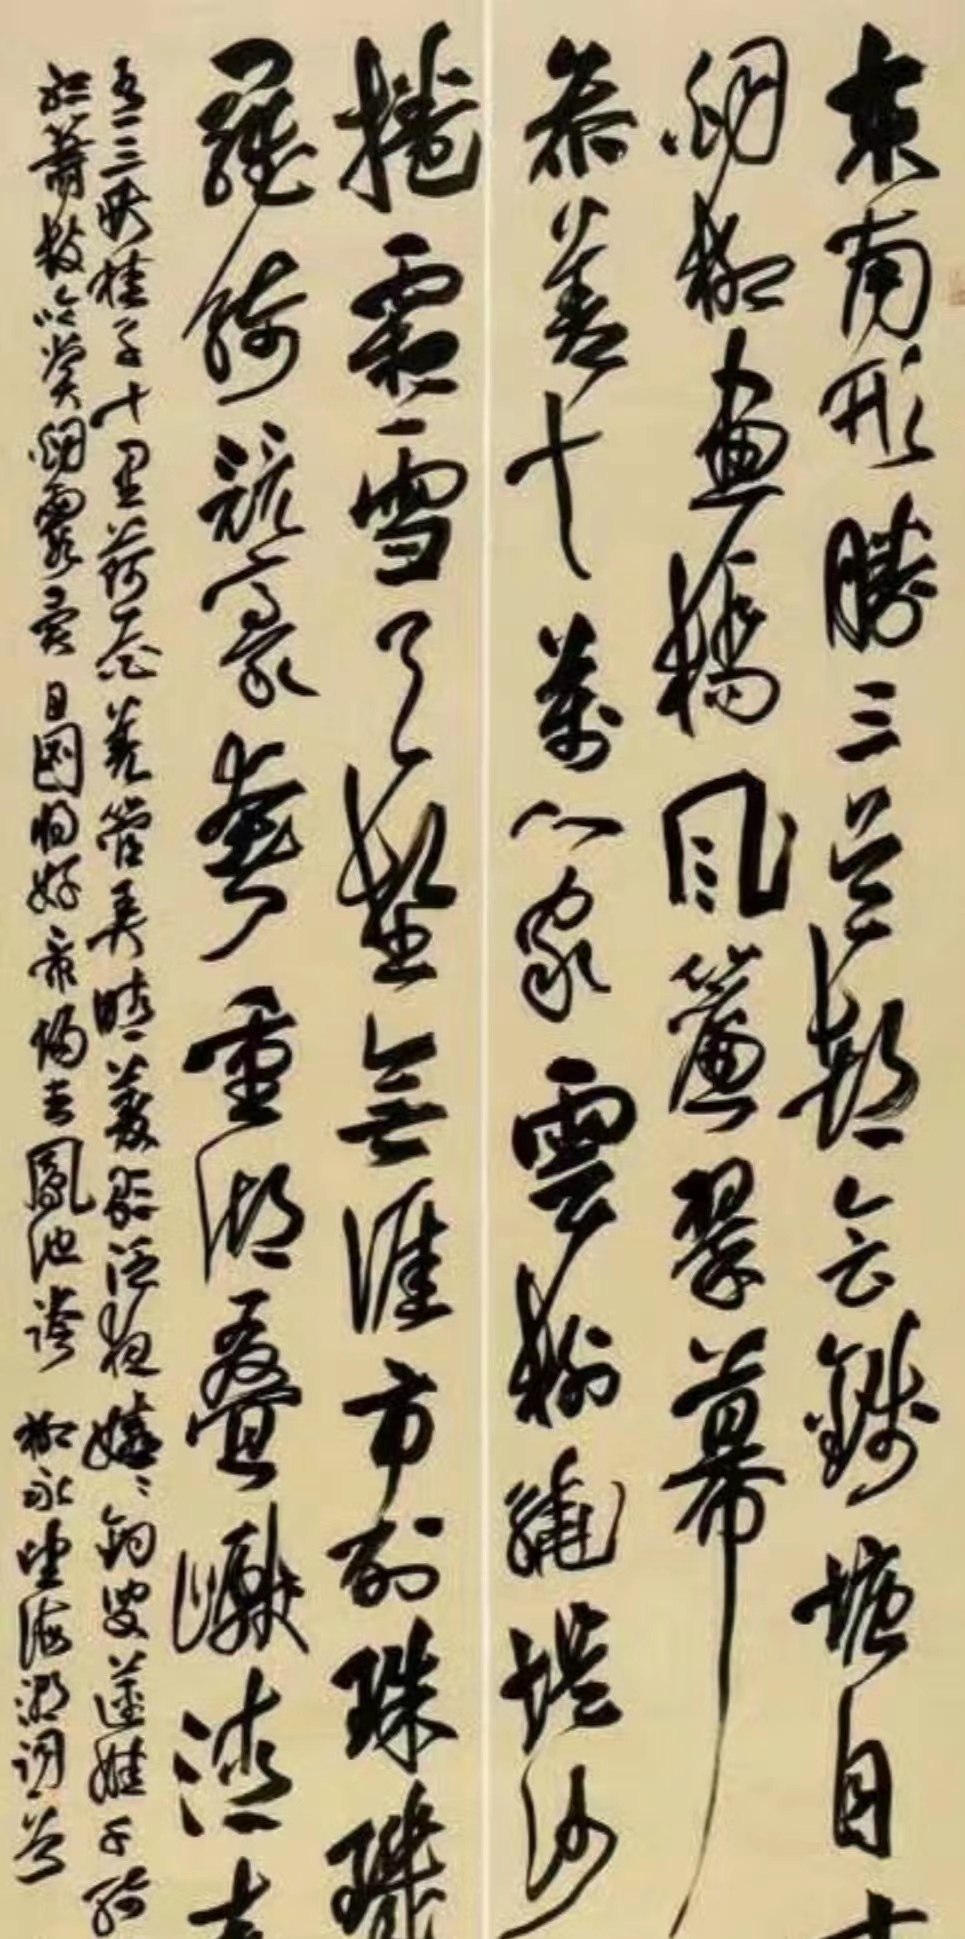 東南形勝三吳都會錢塘自
煙柳畫橋風簾翠幕
參差十萬人家雲樹繞堤沙
捲霜雪天塹無涯市列珠璣
羅綺競豪奢重湖疊巘清
有三秋桂子十里荷花羌管弄晴菱歌泛夜嬉嬉釣叟蓮娃千騎
聽簫鼓吟賞煙霞異日圖將好景歸去鳳池誇 柳永望海潮詞